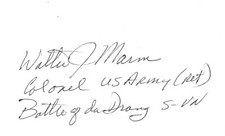 Walter J Marm
Colonel US Army (Ret)
Battle of Ia Drang S-VN